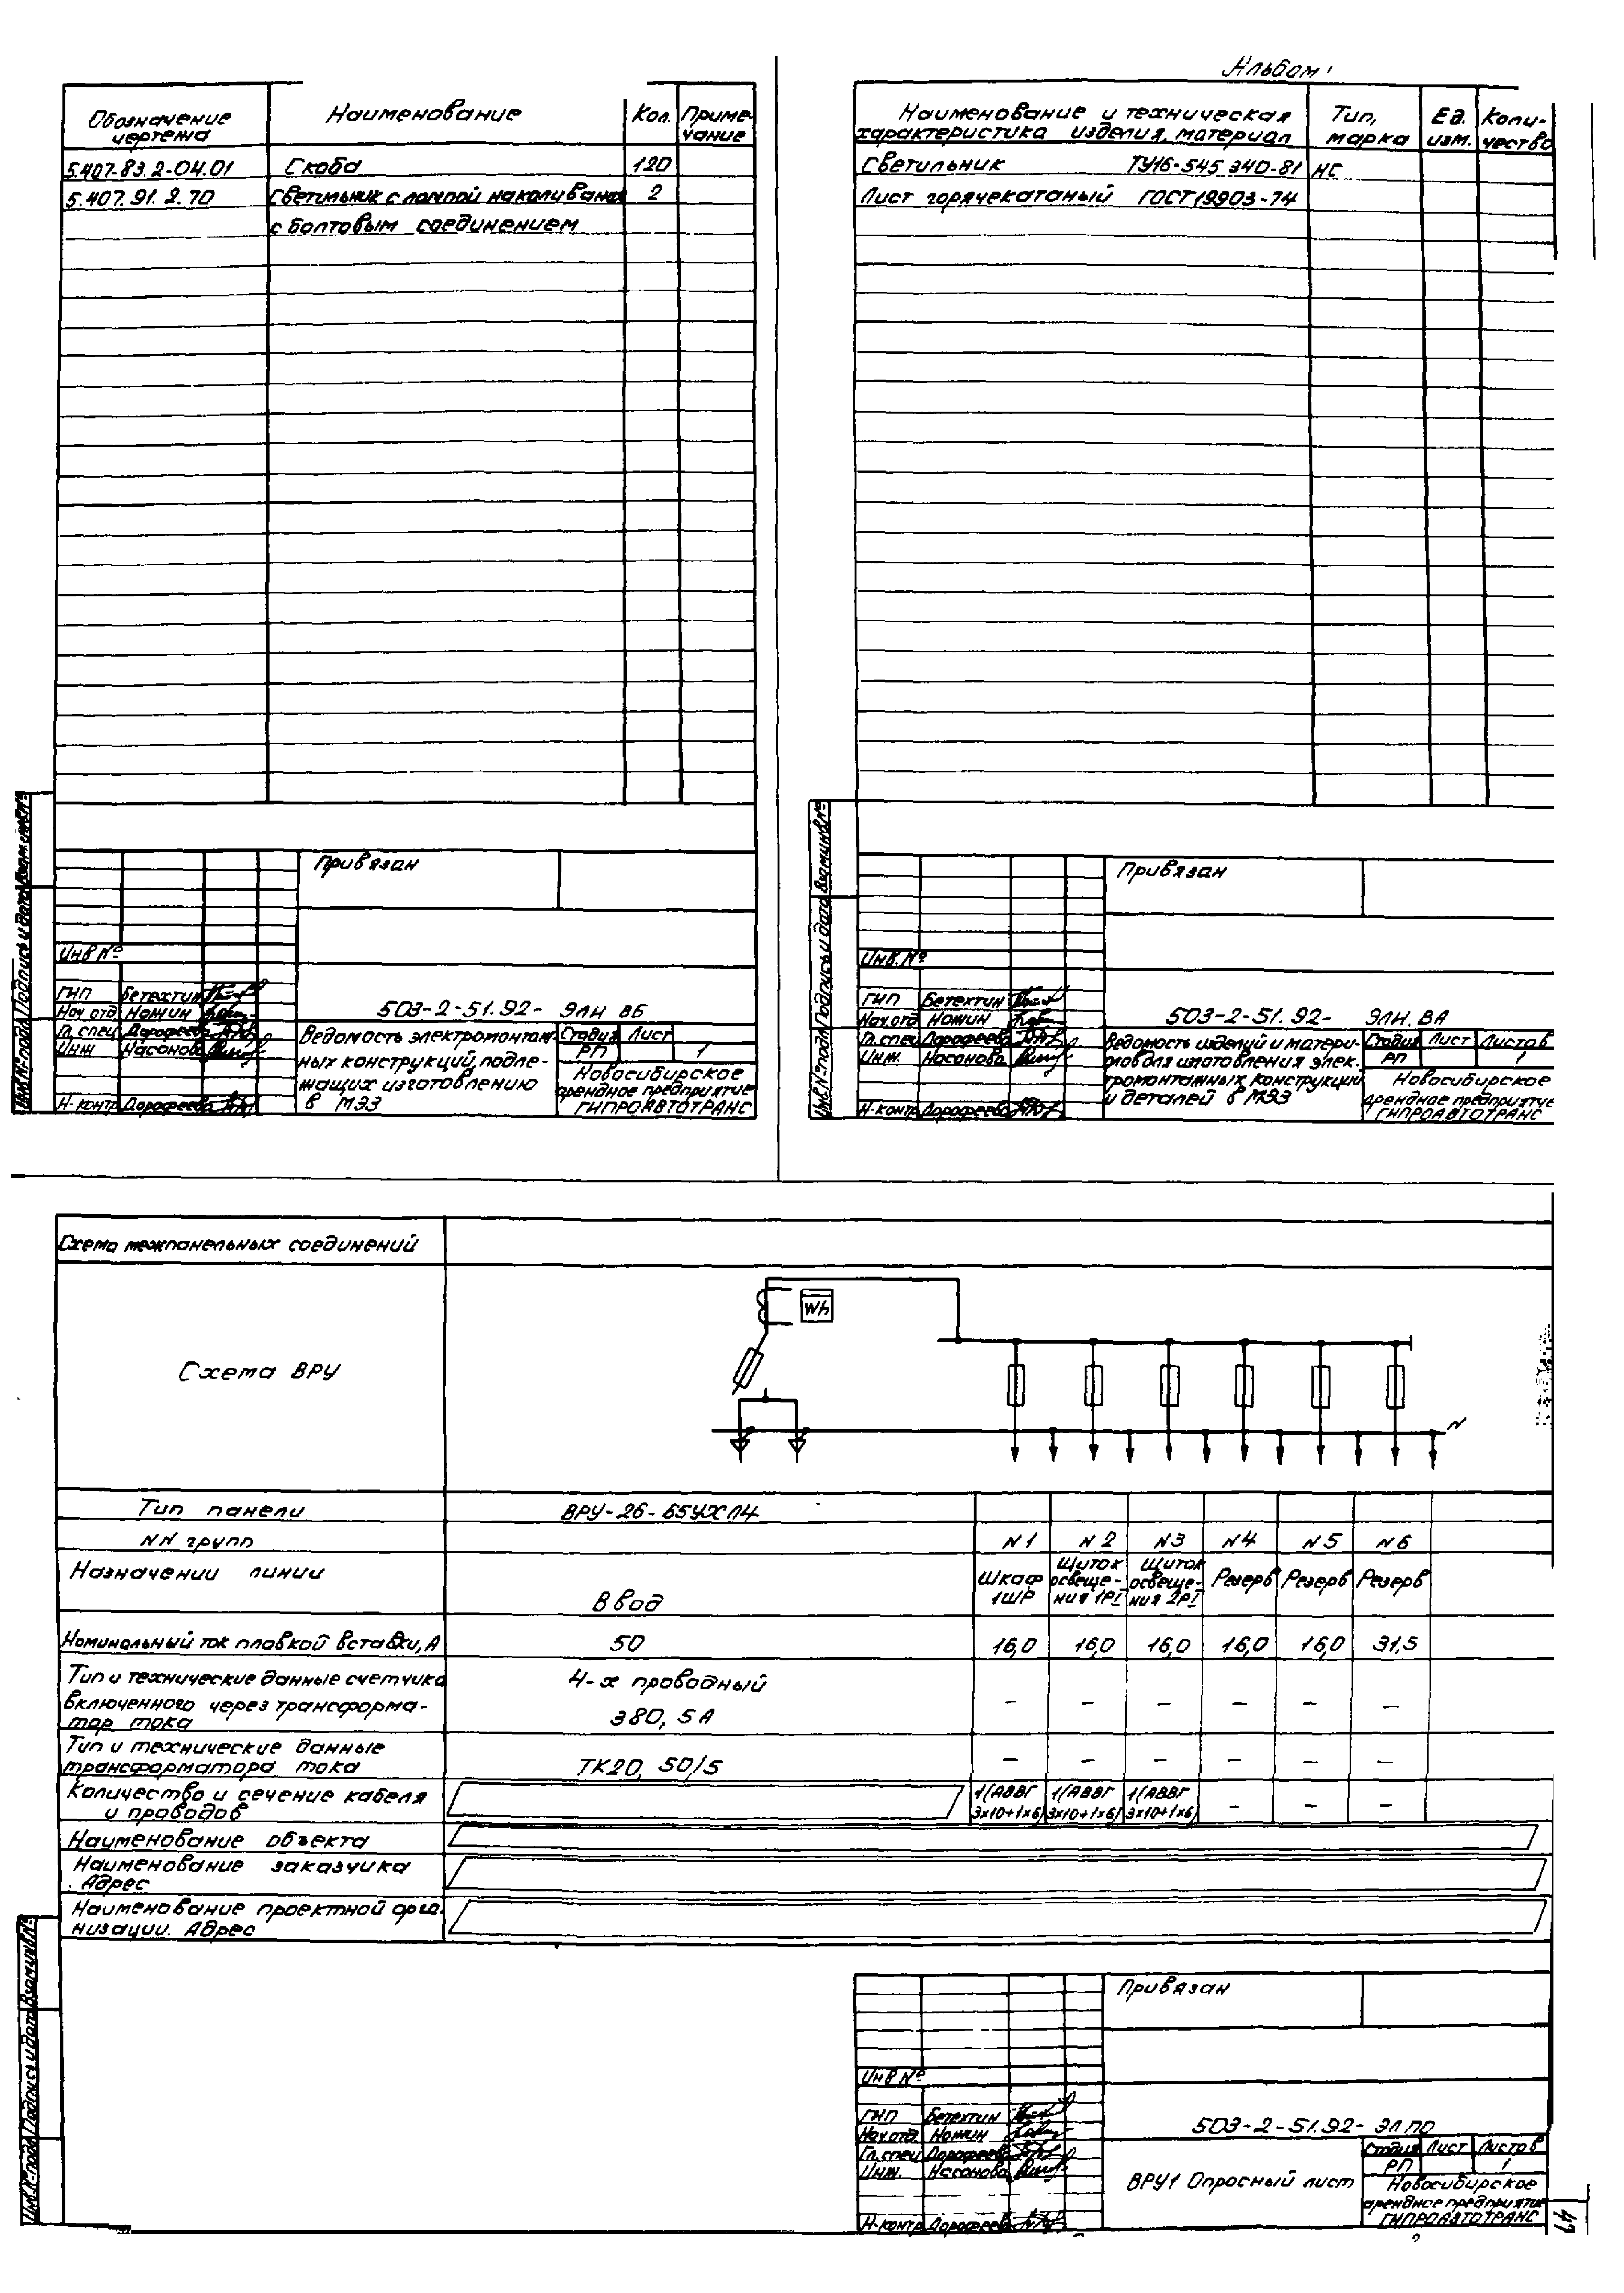 Альбом
Обозначение чертежа
Наименование
Кол.
Примечание
5.407-83.2-04.01 Скоба 120
5.407.91.2.70 Светильник с лампой накаливания 2
с болтовым соединением
Привязан
Инв №
ГИП Бетехтин
Нач.отд Номин
Гл. спец Дорофеева
Инж Насонова
Н-контр Дорофеева
503-2-51.92- ЭЛН ВБ
Ведомость электромонтаж-
ных конструкций, подле-
жащих изготовлению
в МЭЗ
Стадия Лист
РП 1
Новосибирское
арендное предприятие
ГИПРОАВТОТРАНС
Инв.№ подл. Подпись и дата Взам.инв.№
Наименование и техническая
характеристика изделия, материал
Тип,
марка
Ед.
изм.
Коли-
чество
Светильник ТУ16-545.340-81 НС
Лист горячекатаный ГОСТ19903-74
Привязан
Инв. №
ГИП Бетехтин
Нач.отд Номин
Гл.спец Дорофеева
Инж. Насонова
Н-контр Дорофеева
503-2-51.92- ЭЛН.ВА
Ведомость изделий и матери-
алов для изготовления элек-
тромонтажных конструкций
и деталей в МЭЗ
Стадия Лист Листов
РП 1
Новосибирское
арендное предприятие
ГИПРОАВТОТРАНС
Инв.№ подл. Подпись и дата Взам.инв.№
Схема межпанельных соединений
Схема ВРУ
Wh
N
Тип панели ВРУ-26-65УХЛ4
NN групп N1 N2 N3 N4 N5 N6
Назначении линии Ввод
Шкаф 1ШР
Щиток освеще-ния 1РI
Щиток освеще-ния 2РI
Резерв Резерв Резерв
Номинальный ток плавкой вставки, А 50 16,0 16,0 16,0 16,0 16,0 31,5
Тип и технические данные счетчика 4-х проводный
включенного через трансформа- – – – – – –
тор тока 380, 5А
Тип и технические данные
трансформатора тока ТК20, 50/5 – – – – – –
Количество и сечение кабеля 1(АВВГ 1(АВВГ 1(АВВГ
и проводов 3х10+1х6) 3х10+1х6) 3х10+1х6) – – –
Наименование объекта
Наименование заказчика
Адрес
Наименование проектной орга-
низации. Адрес
Привязан
Инв №
ГИП Бетехтин
Нач.отд Номин
Гл.спец Дорофеева
Инж. Насонова
Н-контр Дорофеева
503-2-51.92- ЭЛ ПО
ВРУ1 Опросный лист
Стадия Лист Листов
РП 1
Новосибирское
арендное предприятие
ГИПРОАВТОТРАНС
Инв.№ подл. Подпись и дата Взам.инв.№
47